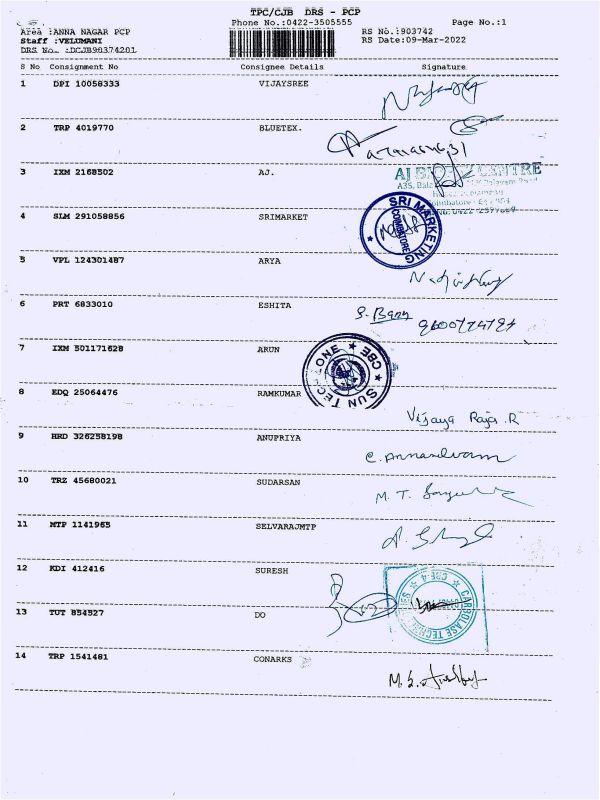 TPC/CJB DRS - PCP
Area :ANNA NAGAR PCP Phone No.:0422-3505555 Page No.:1
Staff :VELUMANI RS No.:903742
DRS No.. :DCJB90374201 RS Date:09-Mar-2022
S No Consignment No Consignee Details Signature
1 DPI 10058333 VIJAYSREE
2 TRP 4019770 BLUETEX.
3 IXM 2168502 AJ.
AJ CENTRE
4 SLM 291058856 SRIMARKET
SRI MARKETING
COIMBATORE
5 VPL 124301487 ARYA
6 PRT 6833010 ESHITA
7 IXM 501171628 ARUN
SUN TECH ONE CBE
8 EDQ 25064476 RAMKUMAR
Vijaya Raja.R
9 HRD 326258198 ANUPRIYA
10 TRZ 45680021 SUDARSAN
M. T.
11 MTP 1141965 SELVARAJMTP
12 KDI 412416 SURESH
CBE-4
13 TUT 854527 DO
14 TRP 1541481 CONARKS